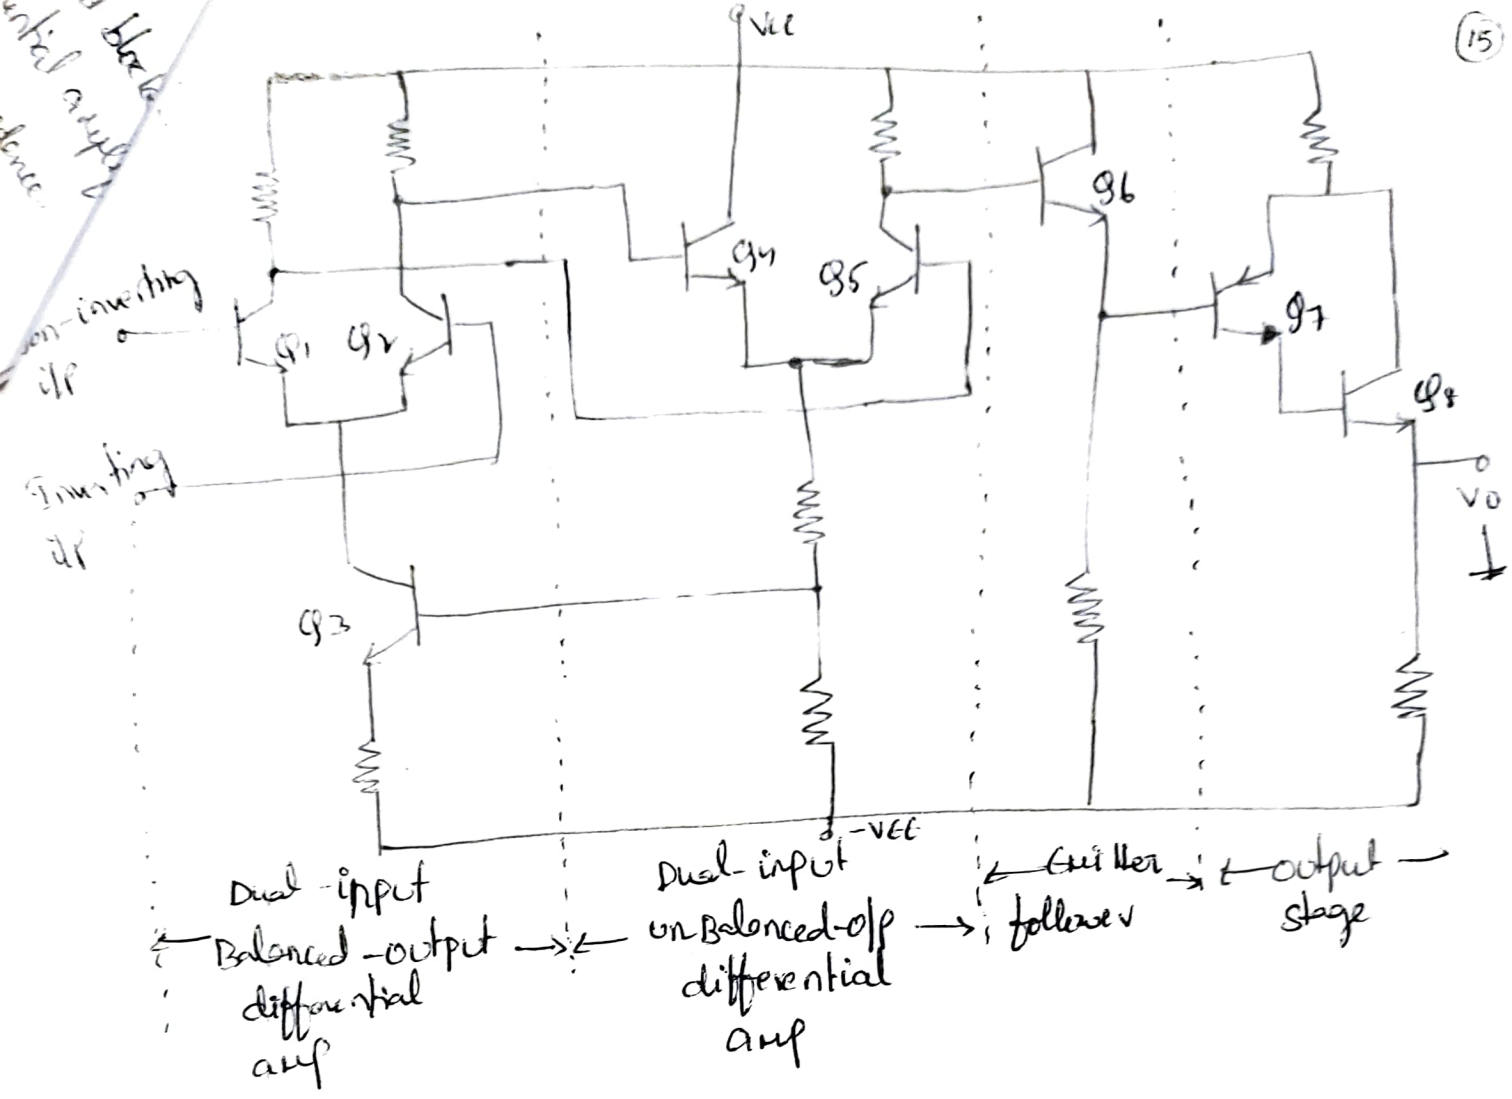 block
15
VCC
Q6
Q4
Q5
Q7
non-inverting
i/P
Q1
Q2
Q8
Inverting
i/P
Vo
Q3
-VEE
Dual-input
Balanced-output
differential
amp
Dual-input
unBalanced-o/p
differential
amp
Emitter
follower
output
stage